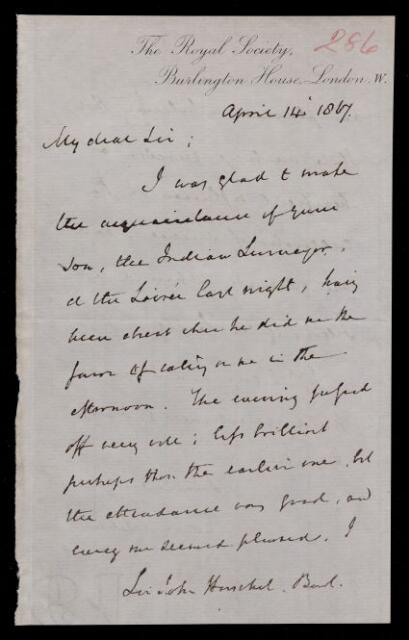 The Royal Society, 286
Burlington House, London. W.
April 14 1867.
My dear Sir;
I was glad to make
the acquaintance of your
son, the Indian Surveyor,
at the Soirée last night, having
been absent when he did me the
favor of calling on me in the
afternoon. The evening passed
off very well; less brilliant
perhaps than the earlier one, but
the attendance was good, and
every one seemed pleased. I
Sir John Herschel. Bart.